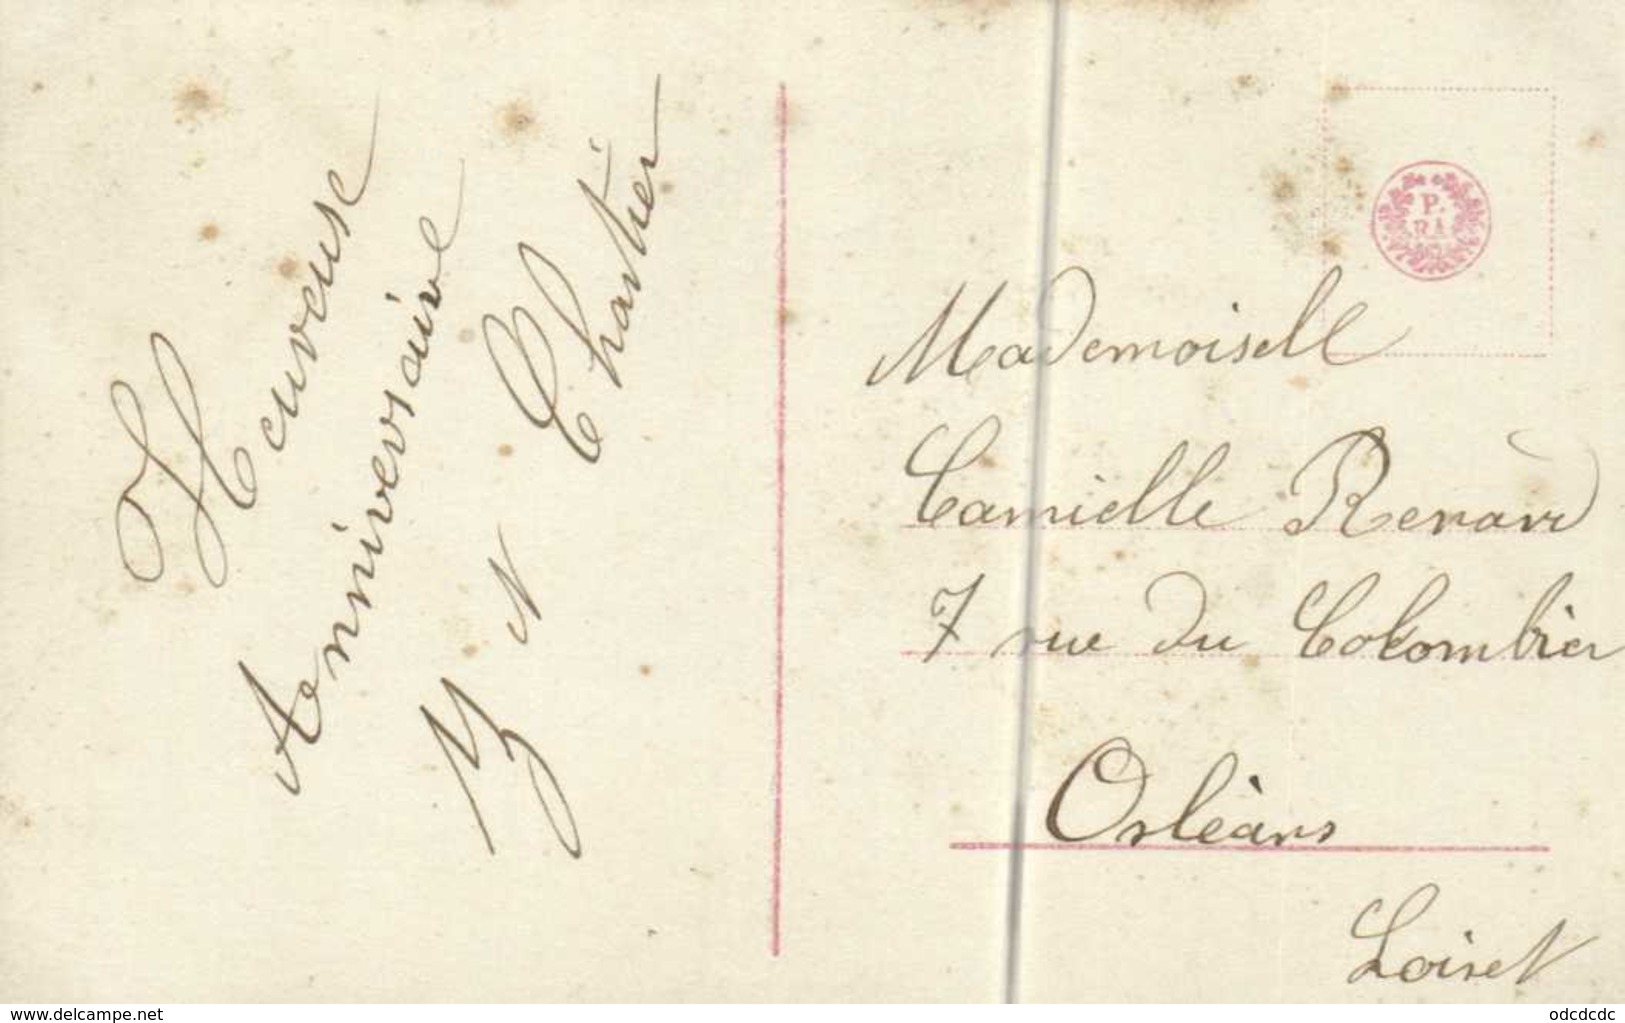 Heureuse
Anniversaire
N Chartier
P.
Mademoiselle
Camielle Renard
7 rue du Colombier
Orléans
Loiret
www.delcampe.net
odcdcdc